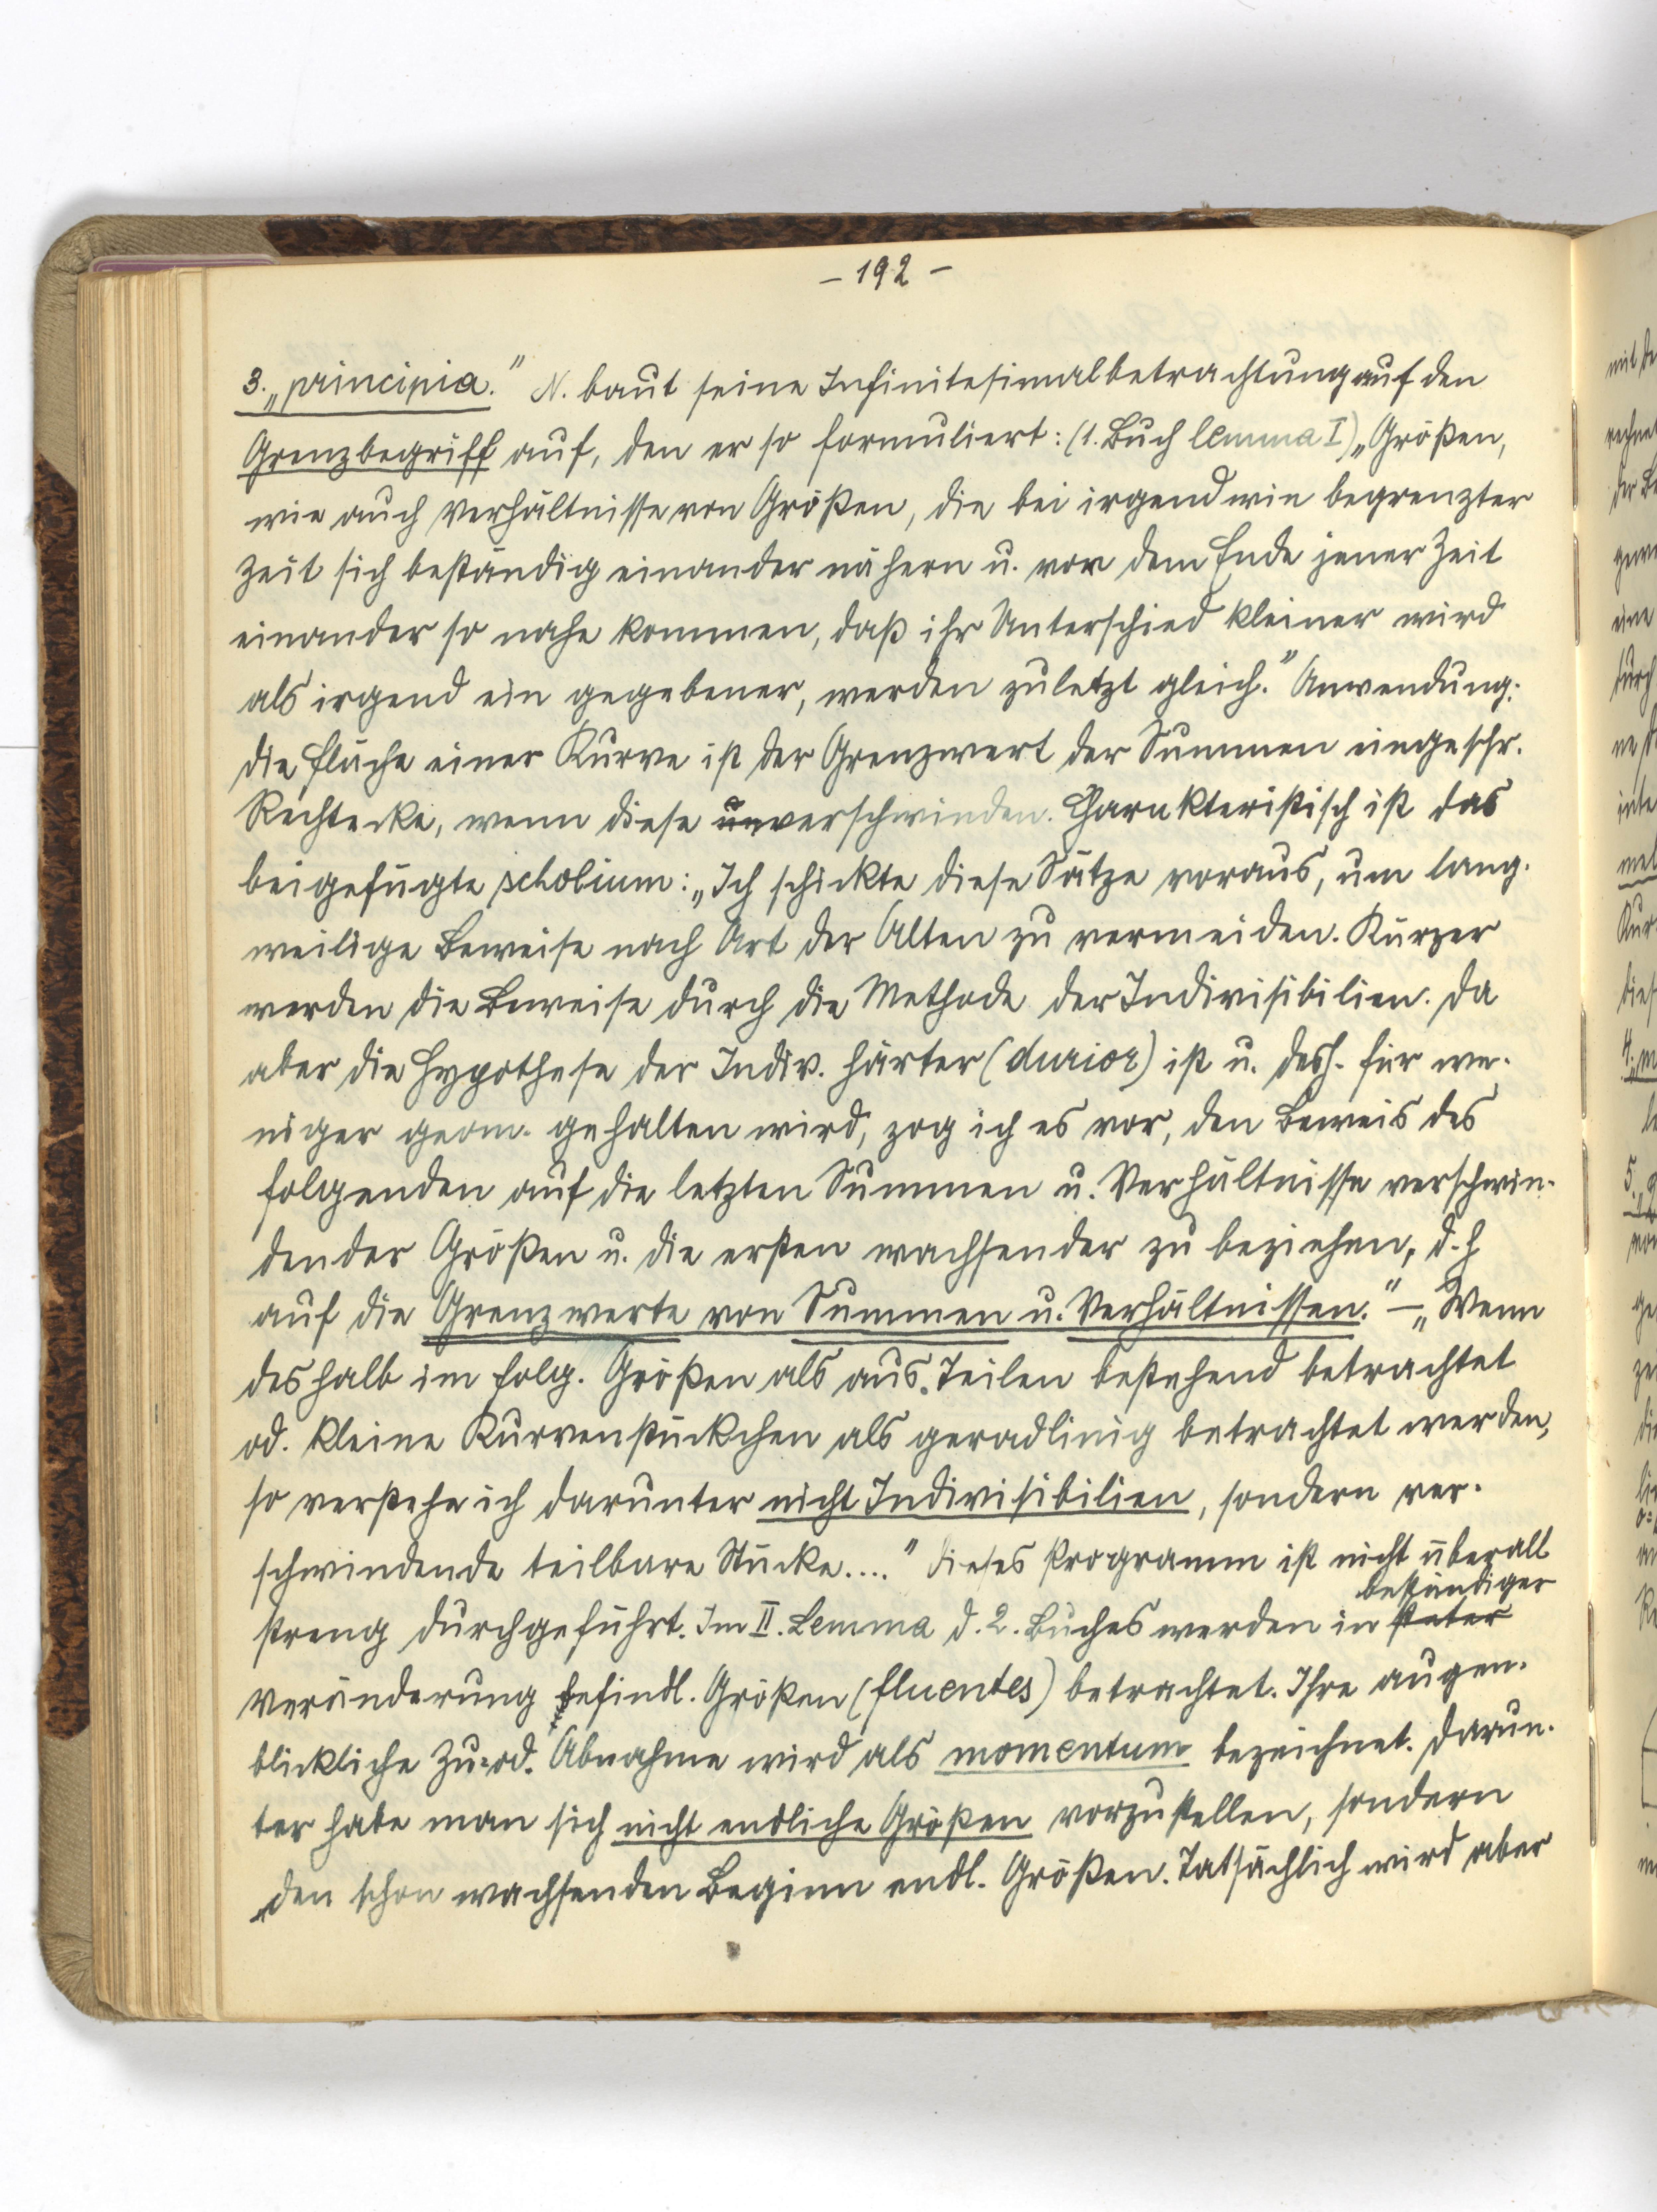 – 192 –
3. „principia." N. baut seine Infinitesimalbetrachtung auf den
Grenzbegriff auf, den er so formuliert: (1. Buch lemma I) „Größen,
wie auch Verhältnisse von Größen, die bei irgendwie begrenzter
Zeit sich beständig einander nähern u. vor dem Ende jener Zeit
einander so nahe kommen, daß ihr Unterschied kleiner wird
als irgend ein gegebener, werden zuletzt gleich." Anwendung:
die Fläche einer Kurve ist der Grenzwert der Summen eingeschr.
Rechtecke, wenn diese un verschwinden. Charakteristisch ist das
beigefügte scholium: „Ich schickte diese Sätze voraus, um lang-
weilige Beweise nach Art der Alten zu vermeiden. Kürzer
werden die Beweise durch die Methode der Indivisibilien. Da
aber die Hypothese der Indiv. härter (durior) ist u. desh. für we-
niger geom. gehalten wird, zog ich es vor, den Beweis des
folgenden auf die letzten Summen u. Verhältnisse verschwin-
dender Größen u. die ersten wachsender zu beziehen, d. h
auf die Grenzwerte von Summen u. Verhältnissen." – „Wenn
deshalb im folg. Größen als aus Teilen bestehend betrachtet
od. kleine Kurvenstückchen als geradlinig betrachtet werden,
so verstehe ich darunter nicht Indivisibilien, sondern ver-
schwindende teilbare Stücke...." Dieses Programm ist nicht überall
beständiger
streng durchgeführt. Im II. Lemma d. 2. Buches werden in steter
Veränderung befindl. Größen (fluentes) betrachtet. Ihre augen-
blickliche Zu= od. Abnahme wird als momentum bezeichnet. Darun-
ter habe man sich nicht endliche Größen vorzustellen, sondern
„den schon wachsenden Beginn endl. Größen. Tatsächlich wird aber